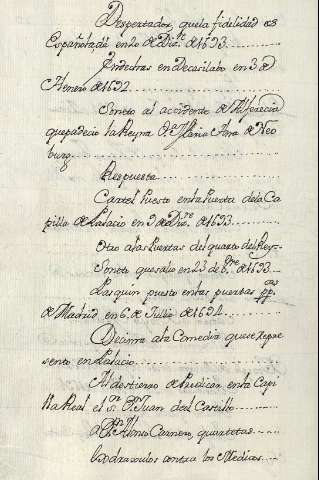 Despertador, que la fidelidad es
Española dê en 20 de Diz.re de 1693
Yndechas en Decasilabo en 3 de
Henero de 1692
Soneto al accidente de Alferecia
que padecio la Reyna D.a Maria Ana de Neo
burg
Respuesta
Cartel Puesto en la Puerta de la Ca
pilla de Palacio en 9 de Diz.re de 1693
Otro a las Puertas del quarto del Rey
Soneto que salio en 23 de 1693
Pasquin puesto en las puertas pp.cas
de Madrid en 6 de Jullio de 1694
Decima a la Comedia que se repre
sento en Palacio
Al destierro de Predicar en la Capi
lla Real el S.r D. Juan del Castillo
a D.n Alonso Carnero, quartetas
Exdraxulos contra los Medicos